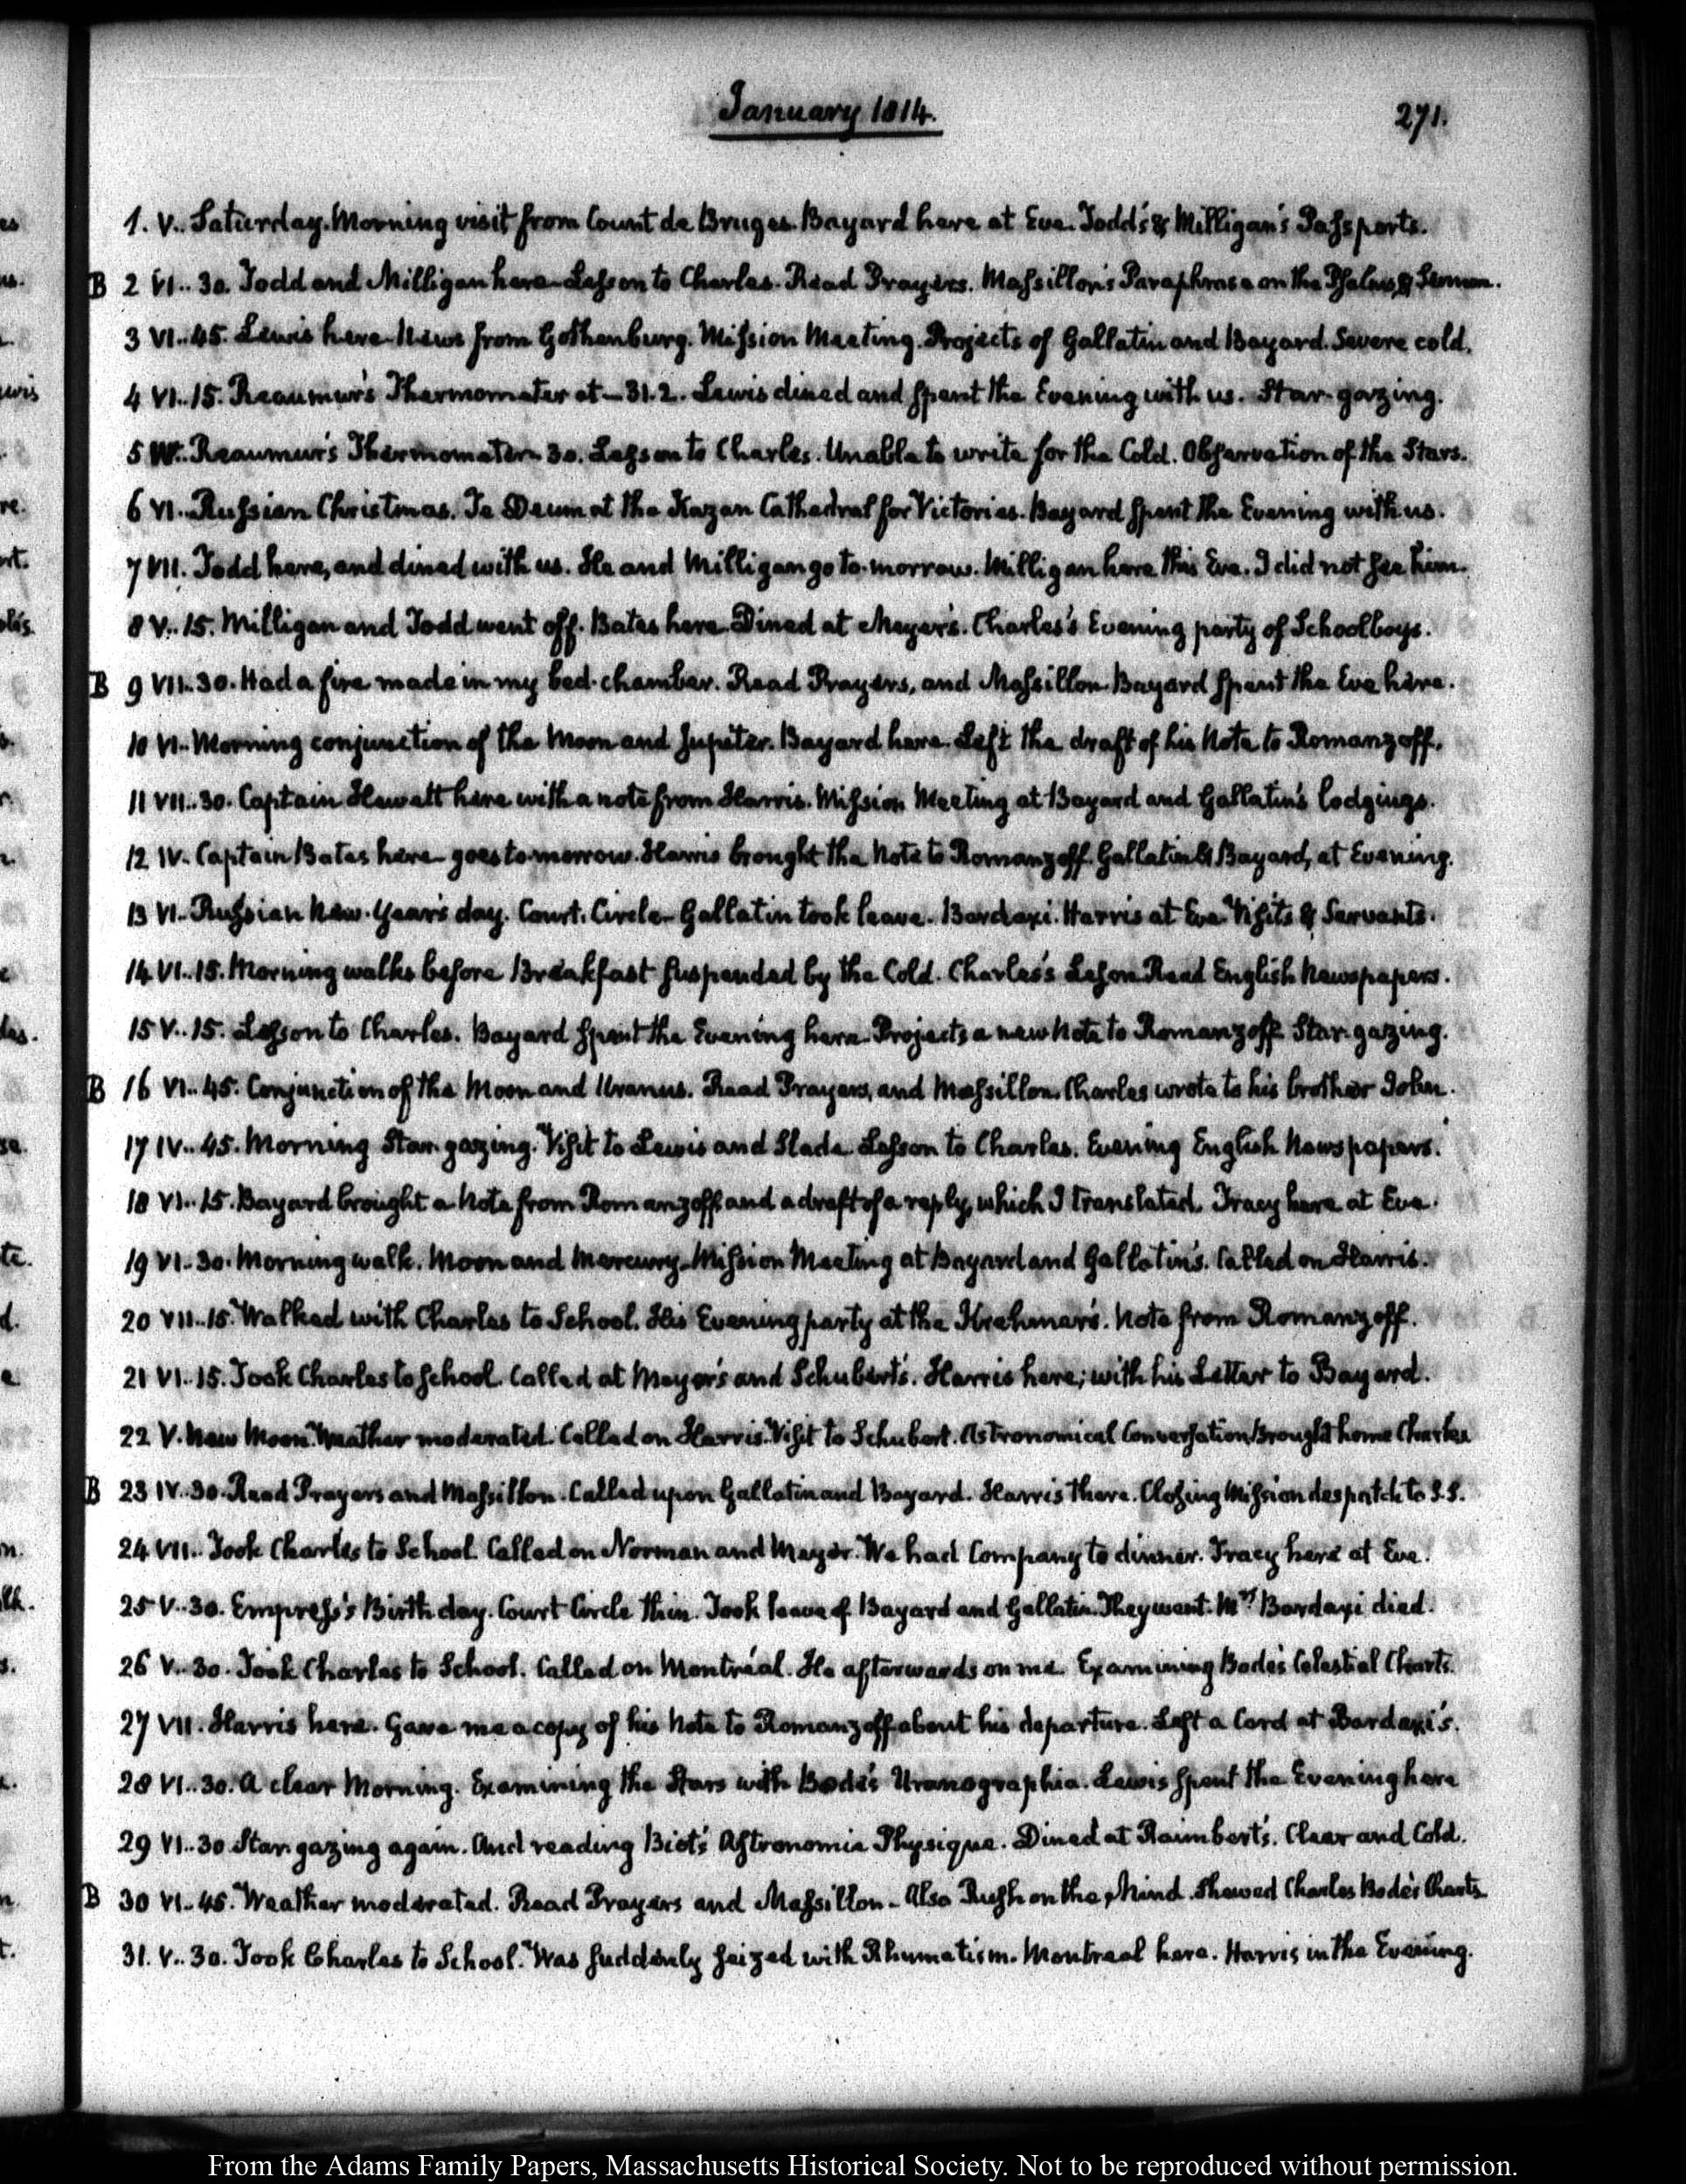 January 1814.
271.
1. V.. Saturday. Morning visit from Count de Bruges. Bayard here at Eve. Todd's & Milligan's Passports.
B 2 VI.. 30. Todd and Milligan here. Lesson to Charles. Read Prayers. Massillon's Paraphrase on the Psalms, & Sermon.
3 VI..45. Lewis here. News from Gothenburg. Mission Meeting. Projects of Gallatin and Bayard. Severe cold.
4 VI..15. Reaumur's Thermometer at -31.2. Lewis dined and spent the Evening with us. Star-gazing.
5 Reaumur's Thermometer 30. Lesson to Charles. Unable to write for the Cold. Observation of the Stars.
6 VI.. Russian Christmas. Te Deum at the Kazan Cathedral for Victories. Bayard spent the Evening with us.
7 VII. Todd here, and dined with us. He and Milligan go to-morrow. Milligan here this Eve. I did not see him.
8 V..15. Milligan and Todd went off. Bates here. Dined at Meyer's. Charles's Evening party of Schoolboys.
B 9 VII..30. Had a fire made in my bed-chamber. Read Prayers, and Massillon. Bayard spent the Eve here.
10 VI.. Morning conjunction of the Moon and Jupiter. Bayard here. Left the draft of his Note to Romanzoff.
11 VII..30. Captain Hewatt here with a note from Harris. Mission Meeting at Bayard and Gallatin's lodgings.
12 IV.. Captain Bates here - goes to-morrow. Harris brought the Note to Romanzoff. Gallatin & Bayard, at Evening.
13 VI.. Russian New-Year's day. Court. Circle - Gallatin took leave. Bardaxi. Harris at Eve. Visits & Servants.
14 VI..15. Morning walks before Breakfast suspended by the Cold. Charles's Lesson. Read English Newspapers.
15 V..15. Lesson to Charles. Bayard spent the Evening here. Projects a new Note to Romanzoff. Star-gazing.
B 16 VI..45. Conjunction of the Moon and Uranus. Read Prayers, and Massillon. Charles wrote to his brother John.
17 IV..45. Morning Star-gazing. Visit to Lewis and Slade. Lesson to Charles. Evening English Newspapers.
18 VI..15. Bayard brought a Note from Romanzoff and a draft of a reply, which I translated. Tracy here at Eve.
19 VI..30. Morning walk. Moon and Mercury. Mission Meeting at Bayard and Gallatin's. Called on Harris.
20 VII..15. Walked with Charles to School. His Evening party at the Krehmer's. Note from Romanzoff.
21 VI..15. Took Charles to School. Called at Meyer's and Schubert's. Harris here; with his Letter to Bayard.
22 V. New Moon. Weather moderated. Called on Harris. Visit to Schubert. Astronomical Conversation. Brought home Charles
B 23 IV..30. Read Prayers and Massillon. Called upon Gallatin and Bayard. Harris there. Closing Mission despatch to S.S.
24 VII.. Took Charles to School. Called on Norman and Meyer. We had Company to dinner. Tracy here at Eve.
25 V..30. Empress's Birth day. Court Circle thin. Took leave of Bayard and Gallatin. They went. Mrs. Bardaxi died.
26 V..30. Took Charles to School. Called on Montréal. He afterwards on me. Examining Bode's Celestial Charts.
27 VII. Harris here. Gave me a copy of his Note to Romanzoff about his departure. Left a Card at Bardaxi's.
28 VI..30. A clear Morning. Examining the Stars with Bode's Uranographia. Lewis spent the Evening here
29 VI..30. Star-gazing again. And reading Biot's Astronomie Physique. Dined at Raimbert's. Clear and Cold.
B 30 VI..45. Weather moderated. Read Prayers and Massillon - Also Rush on the Mind. Shewed Charles Bode's Charts.
31. V..30. Took Charles to School. Was suddenly seized with Rhumatism. Montreal here. Harris in the Evening.
From the Adams Family Papers, Massachusetts Historical Society. Not to be reproduced without permission.